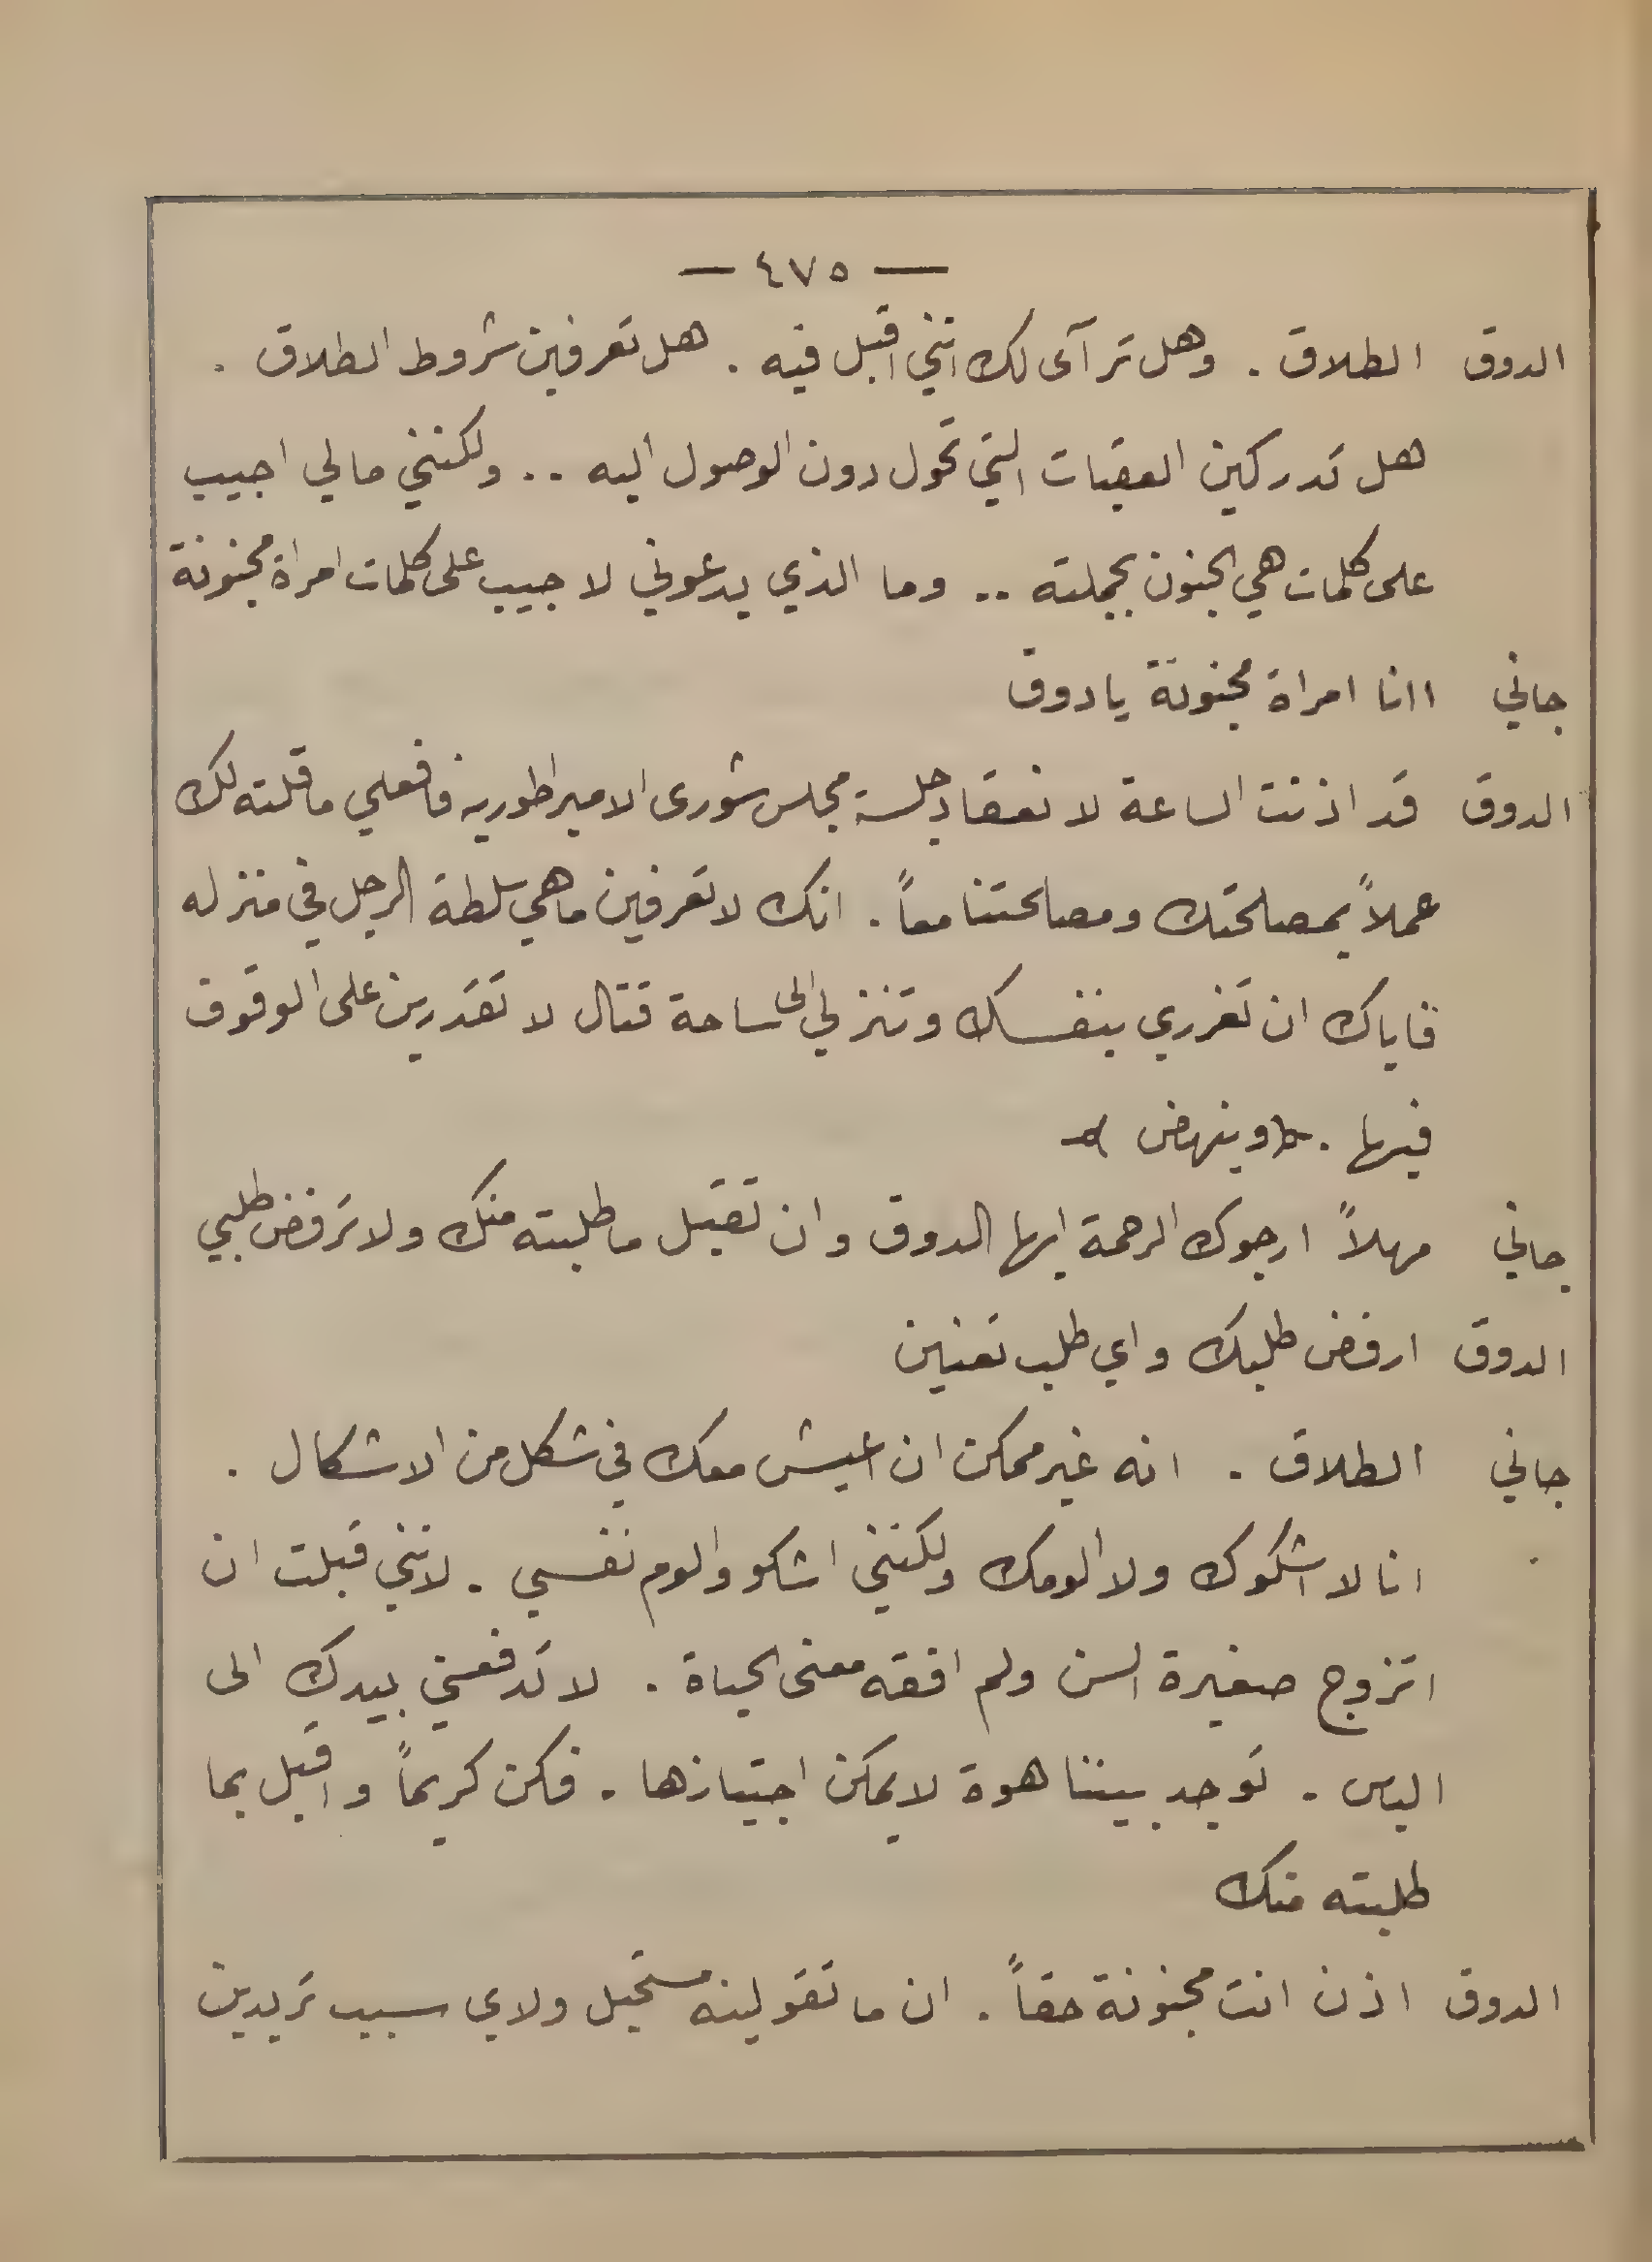 — ٤٧٥ —
الدوق الطلاق . وهل ترآى لك انني اقبل فيه . هل تعرفين شروط الطلاق .
هل تدركين العقبات التي تحول دون الوصول اليه .. ولكنني مالي اجيب
على كلمات هي الجنون بجملته .. وما الذي يدعوني لاجيب على كلمات امراة مجنونة
جاني اانا امراة مجنونة يا دوق
الدوق قد اذنت الساعة لانعقاد جلسة مجلس شورى الامبراطورية فافعلي ما قلته لك
عملاً بمصلحتك ومصلحتنا معاً . انك لا تعرفين ما هي سلطة الرجل في منزله
فاياك ان تغرري بنفسك وتنزلي الى ساحة قتال لا تقدرين على الوقوف
فيها . (وينهض)
جاني مهلاً ارجوك الرحمة ايها الدوق وان تقبل ما طلبته منك ولا ترفض طلبي
الدوق ارفض طلبك واي طلب تعنين
جاني الطلاق . انه غير ممكن ان اعيش معك في شكل من الاشكال .
انا لا اشكوك ولا الومك ولكنني اشكو والوم نفسي . لانني قبلت ان
اتزوج صغيرة السن ولم افقه معنى الحياة . لا تدفعني بيدك الى
الياس . توجد بيننا هوة لا يمكن اجتيازها . فكن كريماً واقبل بما
طلبته منك
الدوق اذن انت مجنونة حقاً . ان ما تقولينه مستحيل ولاي سبب تريدين